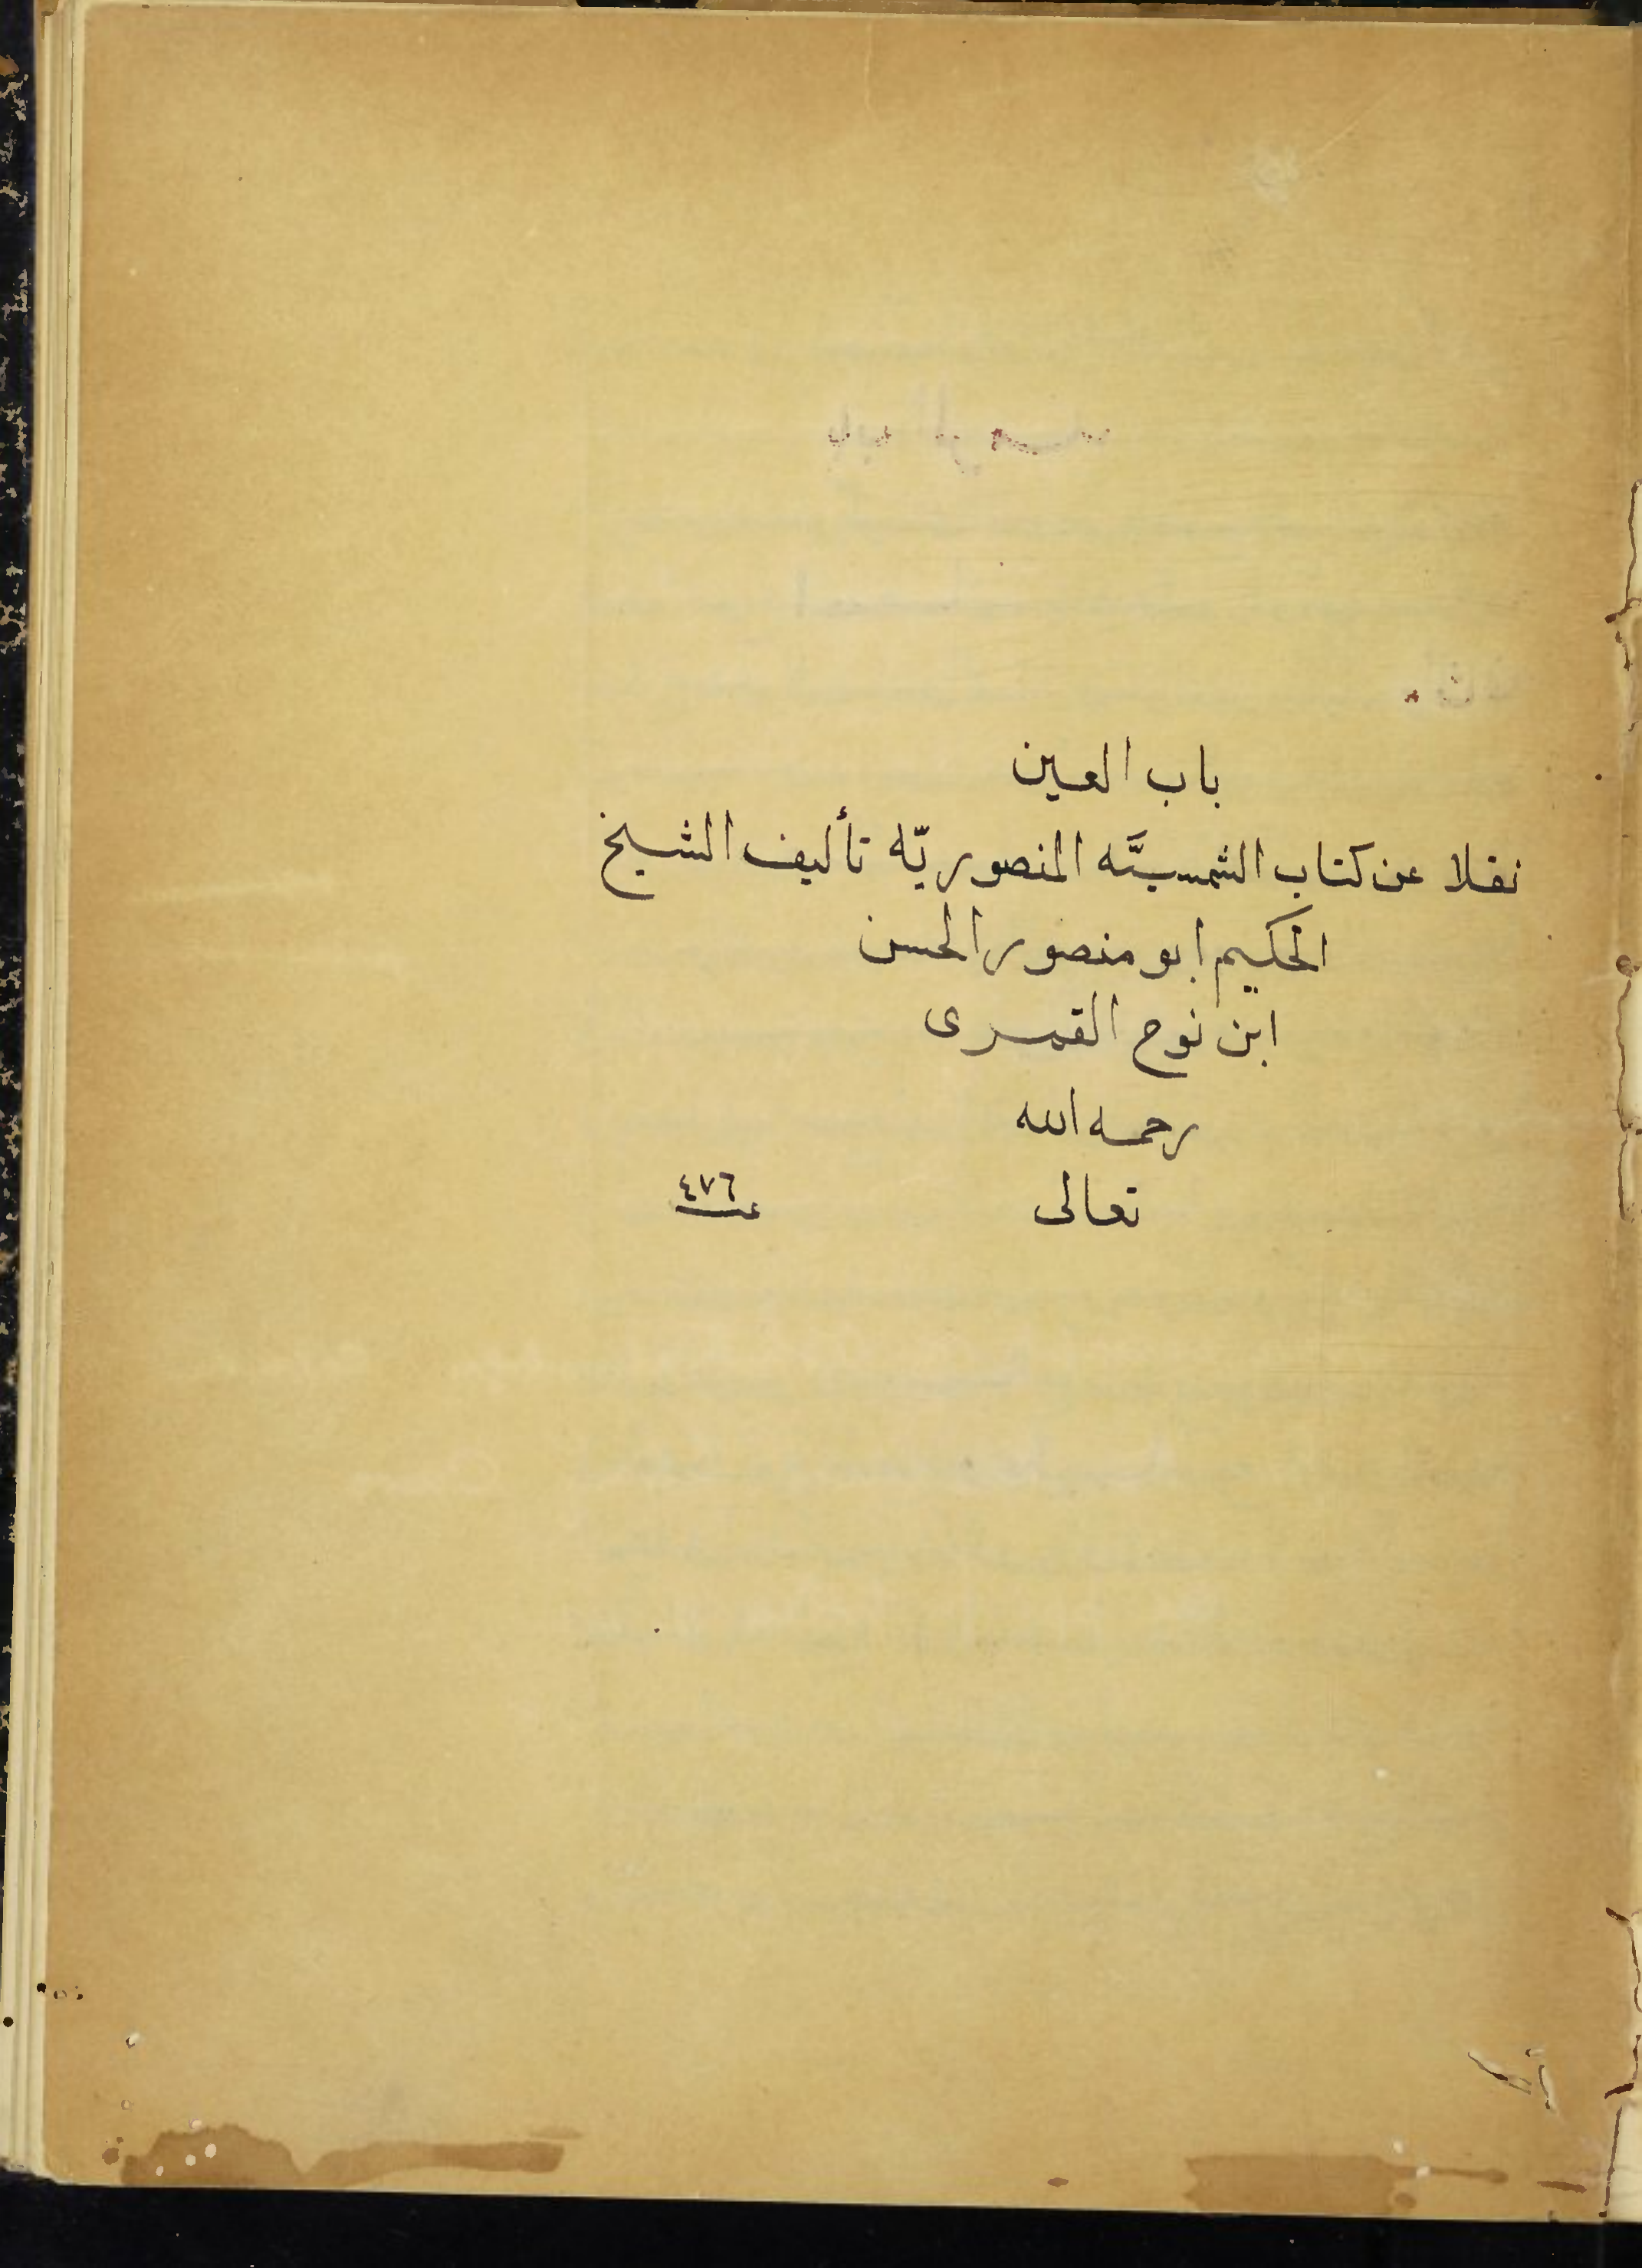 باب العين
نقلا عن كتاب الشمسيَّه المنصوريّه تأليف الشيخ
الحكيم ابو منصور الحسن
ابن نوح القمرى
رحمه الله
تعالى
٤٧٦